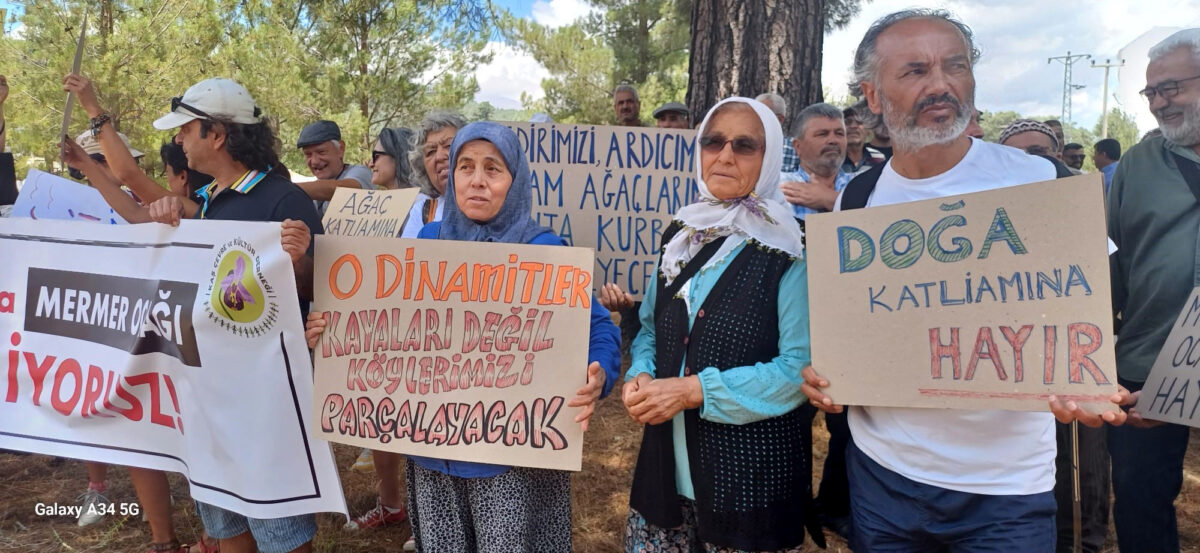 MERMER OCAĞI
İYORUZ!
KAŞ ÇEVRE VE KÜLTÜR DERNEĞİ
AĞAÇ
KATLİAMINA
O DİNAMİTLER
KAYALARI DEĞİL
KÖYLERİMİZİ
PARÇALAYACAK
DİRİMİZİ, ARDICIM
AM AĞAÇLARIN
KURB
YECE
DOĞA
KATLİAMINA
HAYIR
HAY
Galaxy A34 5G